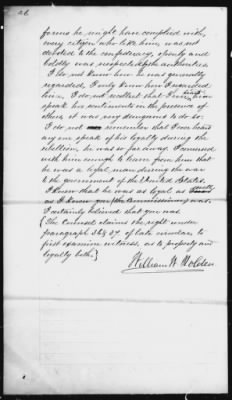 26
forms he might have complied with,
every citizen who like him, was not
devoted to the confederacy, openly and
boldly was suspected by the authorities.
I do not know how he was generally
regarded, I only know how I regarded
him, I do not recollect that I ever heard him
speak his sentiments in the presence of
others, it was very dangerous to do so.
I do not remember that I ever heard
any one speak of his loyalty during the
rebellion, he was so far away. I conversed
with him enough to learn from him that
he was a loyal man during the war
to the government of the United States.
I know that he was as loyal as
as I know you (the Commissioner) was.
I certainly believed that you was
(The Counsel claims the right under
paragraph 36 & 37 of late circular to
first examine witness, as to property and
loyalty both.)
William W. Holden